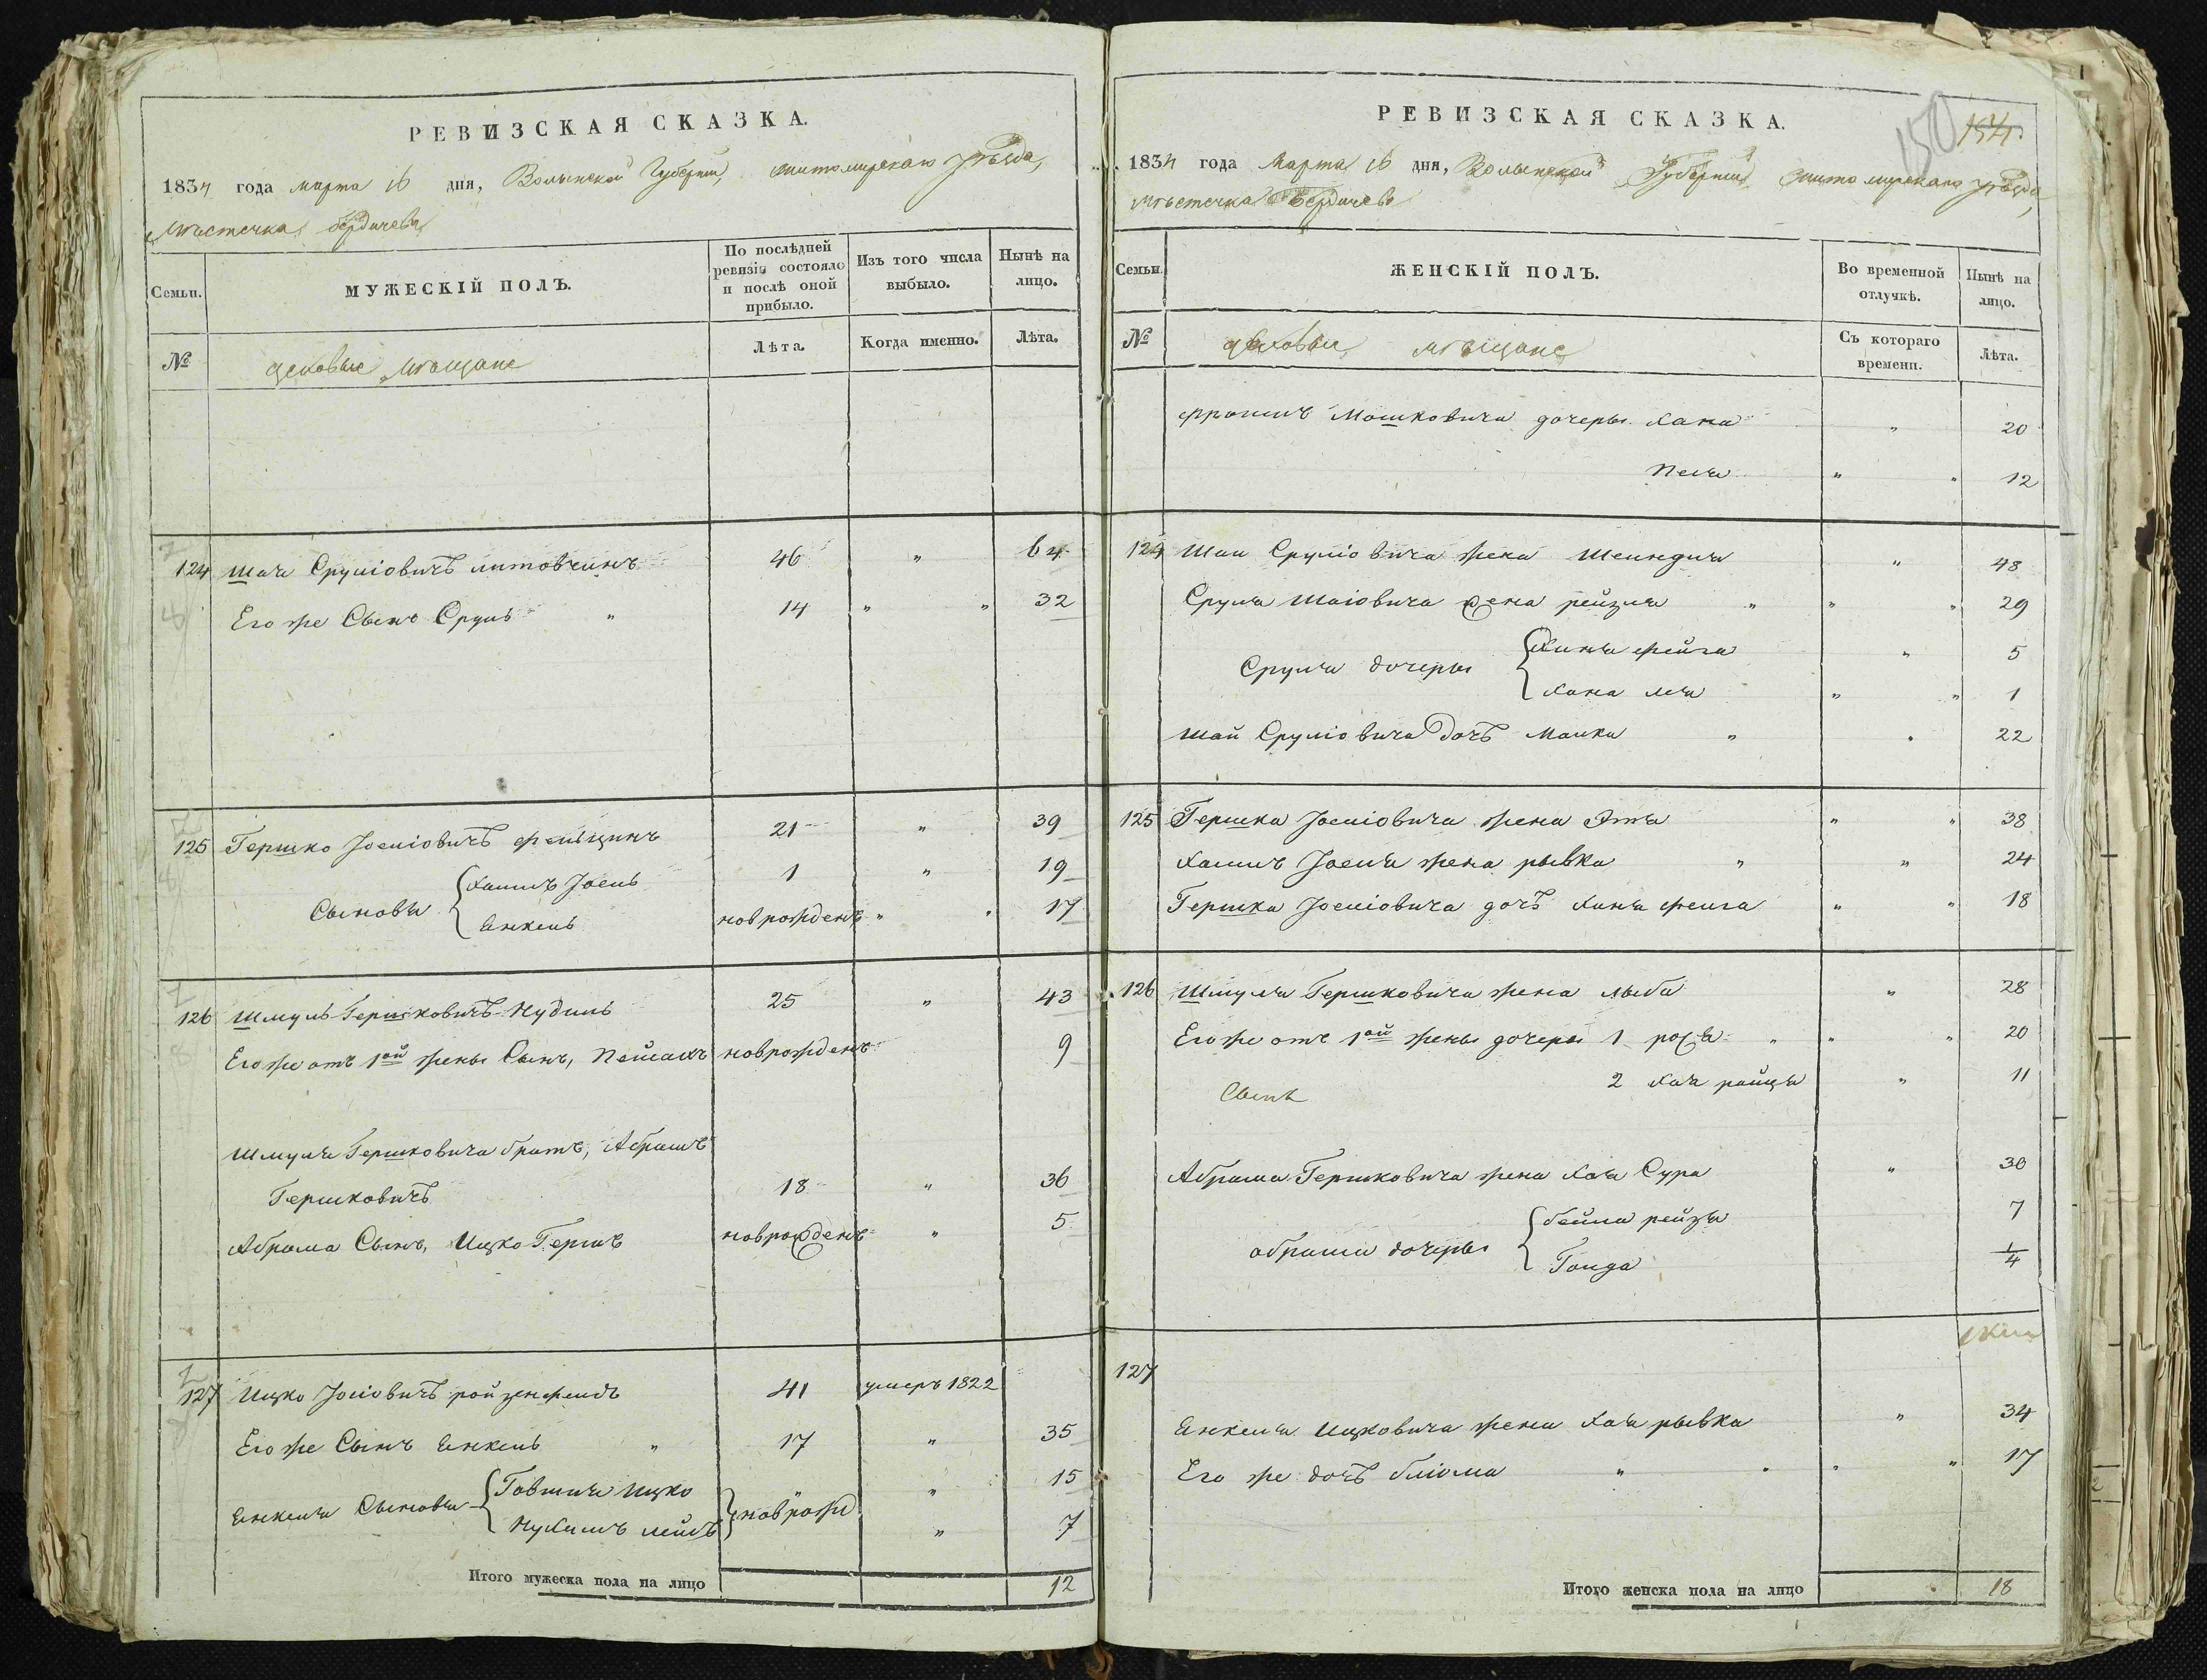 РЕВИЗСКАЯ СКАЗКА.
1834 года марта 16 дня, Волынской Губерніи, житомирскаго уѣзда,
мѣстечка бердичева
Семьи. МУЖЕСКІЙ ПОЛЪ. По послѣдней ревизіи состояло и послѣ оной прибыло. Изъ того числа выбыло. Нынѣ на лицо.
№ цеховые мѣщане Лѣта. Когда именно. Лѣта.
124 Шая Сруліовичъ литовчинъ 46 " 64
Его же Сынъ Сруль " 14 " " 32
125 Гершко Іосиіовичъ 21 " 39
Сыновья { Хаимъ Іосиь 1 " 19
Янкель новрожденъ " " 17
126 Шмуль Гершковичъ Нудиль 25 " 43
Его же отъ 1ой жены Сынъ, Пейсахъ новрожденъ 9
Шмуля Гершковича братъ, Абрамъ
Гершковичъ 18 " 36
Абрама Сынъ, Ицко Гершъ новрожденъ " 5
127 Ицко Іосіовичъ ройзенфельдъ 41 умеръ 1822
Его же Сынъ Янкель " 17 " 35
Янкеля Сыновья { Говшия Ицко } новрожд " 15
Нухимъ лейбъ " 7
Итого мужеска пола на лицо 12
РЕВИЗСКАЯ СКАЗКА.
150 154
1834 года Марта 16 дня, Волынской Губерніи житомирскаго уѣзда,
мѣстечка Бердичева
Семьи. ЖЕНСКІЙ ПОЛЪ. Во временной отлучкѣ. Нынѣ на лицо.
№ цеховые мѣщане Съ котораго времени. Лѣта.
Мошковича дочеры Хана " 20
Песя " " 12
124 Шаи Сруліовича жена Шеиндля " 48
Сруля Шаіовича жена рейзля " " " 29
Сруля дочеры { Хиня фейга " 5
Хана лея " " 1
Шаи Сруліовича дочъ Малка " " 22
125 Гершка Іосиіовича жена Этя " " 38
Хаимъ Іосия жена рывка " " 24
Гершка Іосиіовича дочъ Хиня фейга " " 18
126 Шмуля Гершковича жена лыба " 28
Его же отъ 1ой жены дочеры 1 рохя " " " 20
2 Хая райця " 11
Сынъ
Абрама Гершковича жена Хая Сура " 30
абрама дочеры { бейла рейзя 7
Голда 1/4
127
Янкеля Ицковича жена Хая рывка " 34
Его же дочъ блюма " " " " 17
Итого женска пола на лицо 18